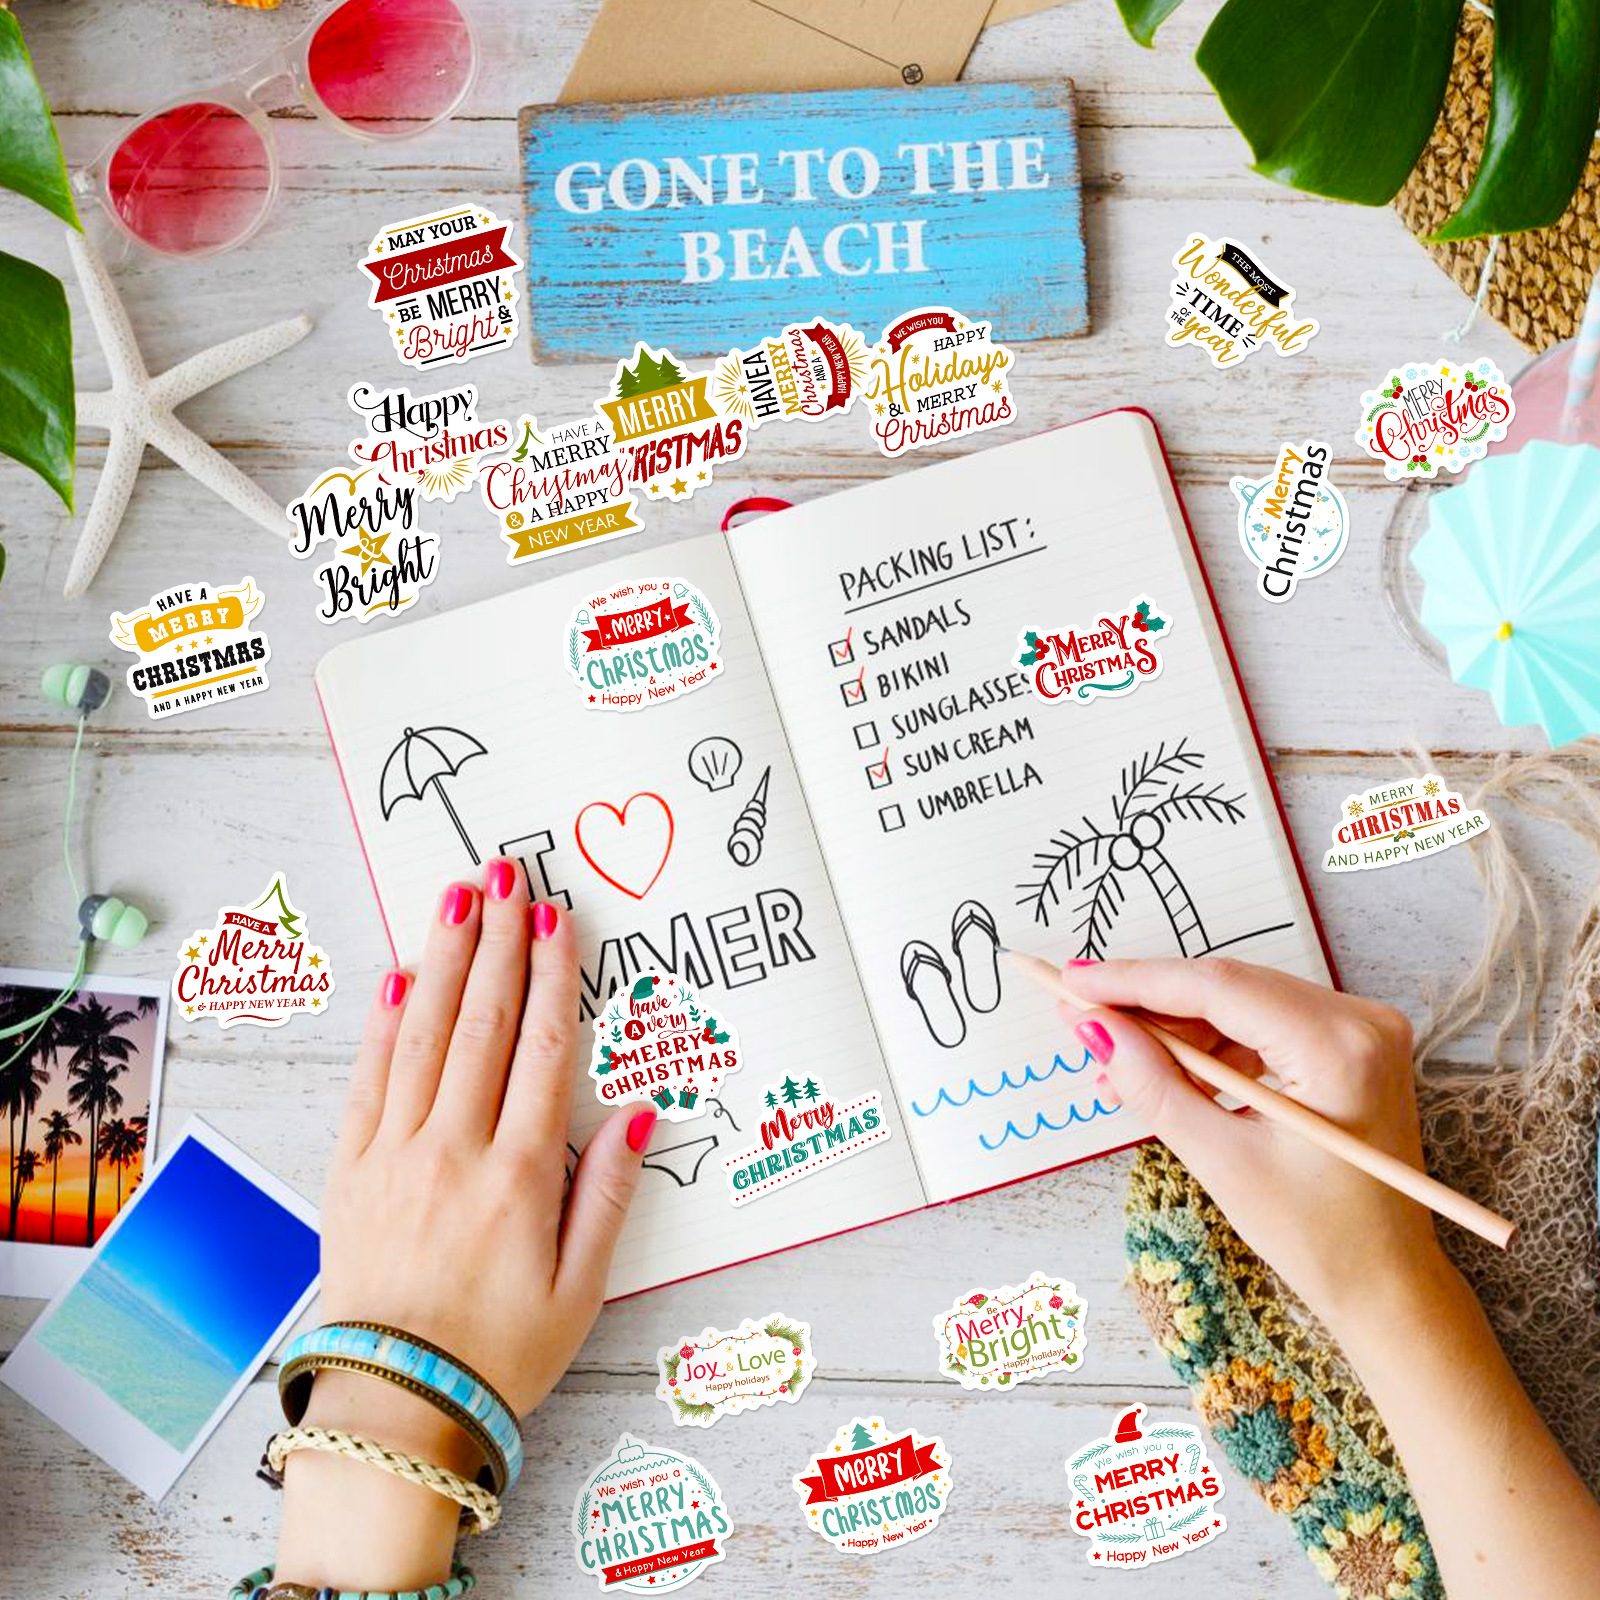 GONE TO THE
BEACH
MAY YOUR
Christmas
BE MERRY
& Bright
THE MOST
Wonderful
TIME
OF THE year
Happy
Christmas
Merry
&
Bright
HAVE A
MERRY
Christmas
& A HAPPY
NEW YEAR
MERRY
CHRISTMAS
HAVE A
MERRY
Christmas
AND A
HAPPY NEW YEAR
WE WISH YOU
HAPPY
Holidays
& MERRY
Christmas
MERRY
Christmas
Merry
Christmas
HAVE A
MERRY
CHRISTMAS
AND A HAPPY NEW YEAR
We wish you a
MERRY
Christmas
&
Happy New Year
PACKING LIST:
SANDALS
BIKINI
SUNGLASSES
SUN CREAM
UMBRELLA
MERRY
CHRISTMAS
I
MMER
MERRY
CHRISTMAS
AND HAPPY NEW YEAR
HAVE A
Merry
Christmas
& HAPPY NEW YEAR
have
A very
MERRY
CHRISTMAS
Merry
CHRISTMAS
Joy & Love
Happy holidays
Be
Merry &
Bright
Happy holidays
We wish you a
MERRY
CHRISTMAS
& Happy New Year
MERRY
Christmas
&
Happy New Year
We wish you a
MERRY
CHRISTMAS
Happy New Year